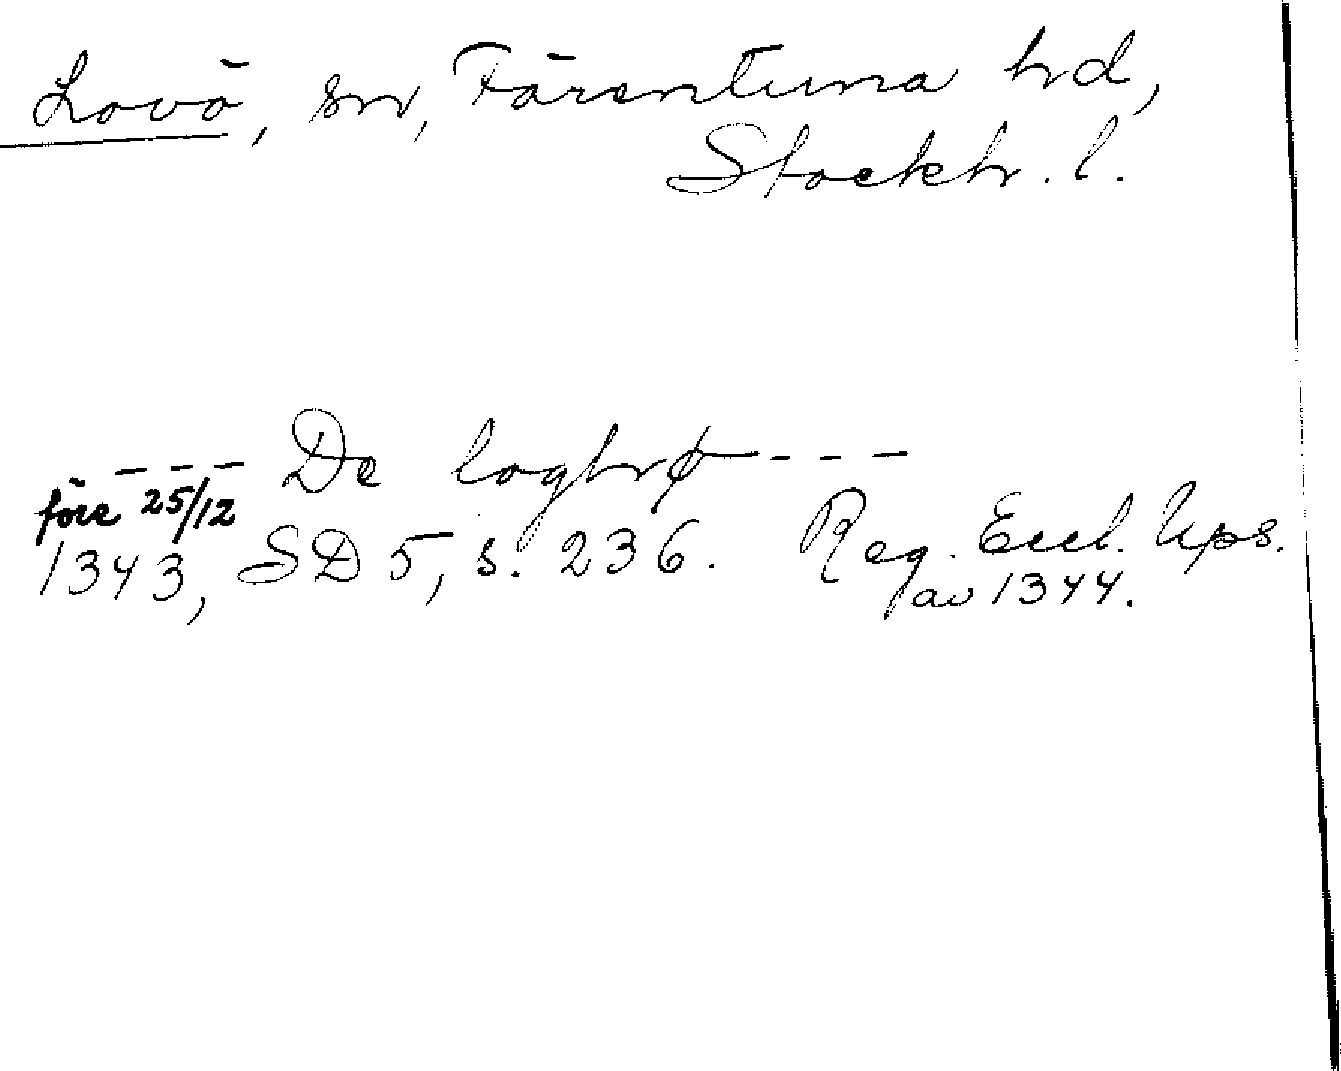 Lovö, sn, Färentuna hd,
Stockh. l.
--- De loghø ---
före 25/12
1343, SD 5, s. 236. Reg. Eccl. Ups.
av 1344.